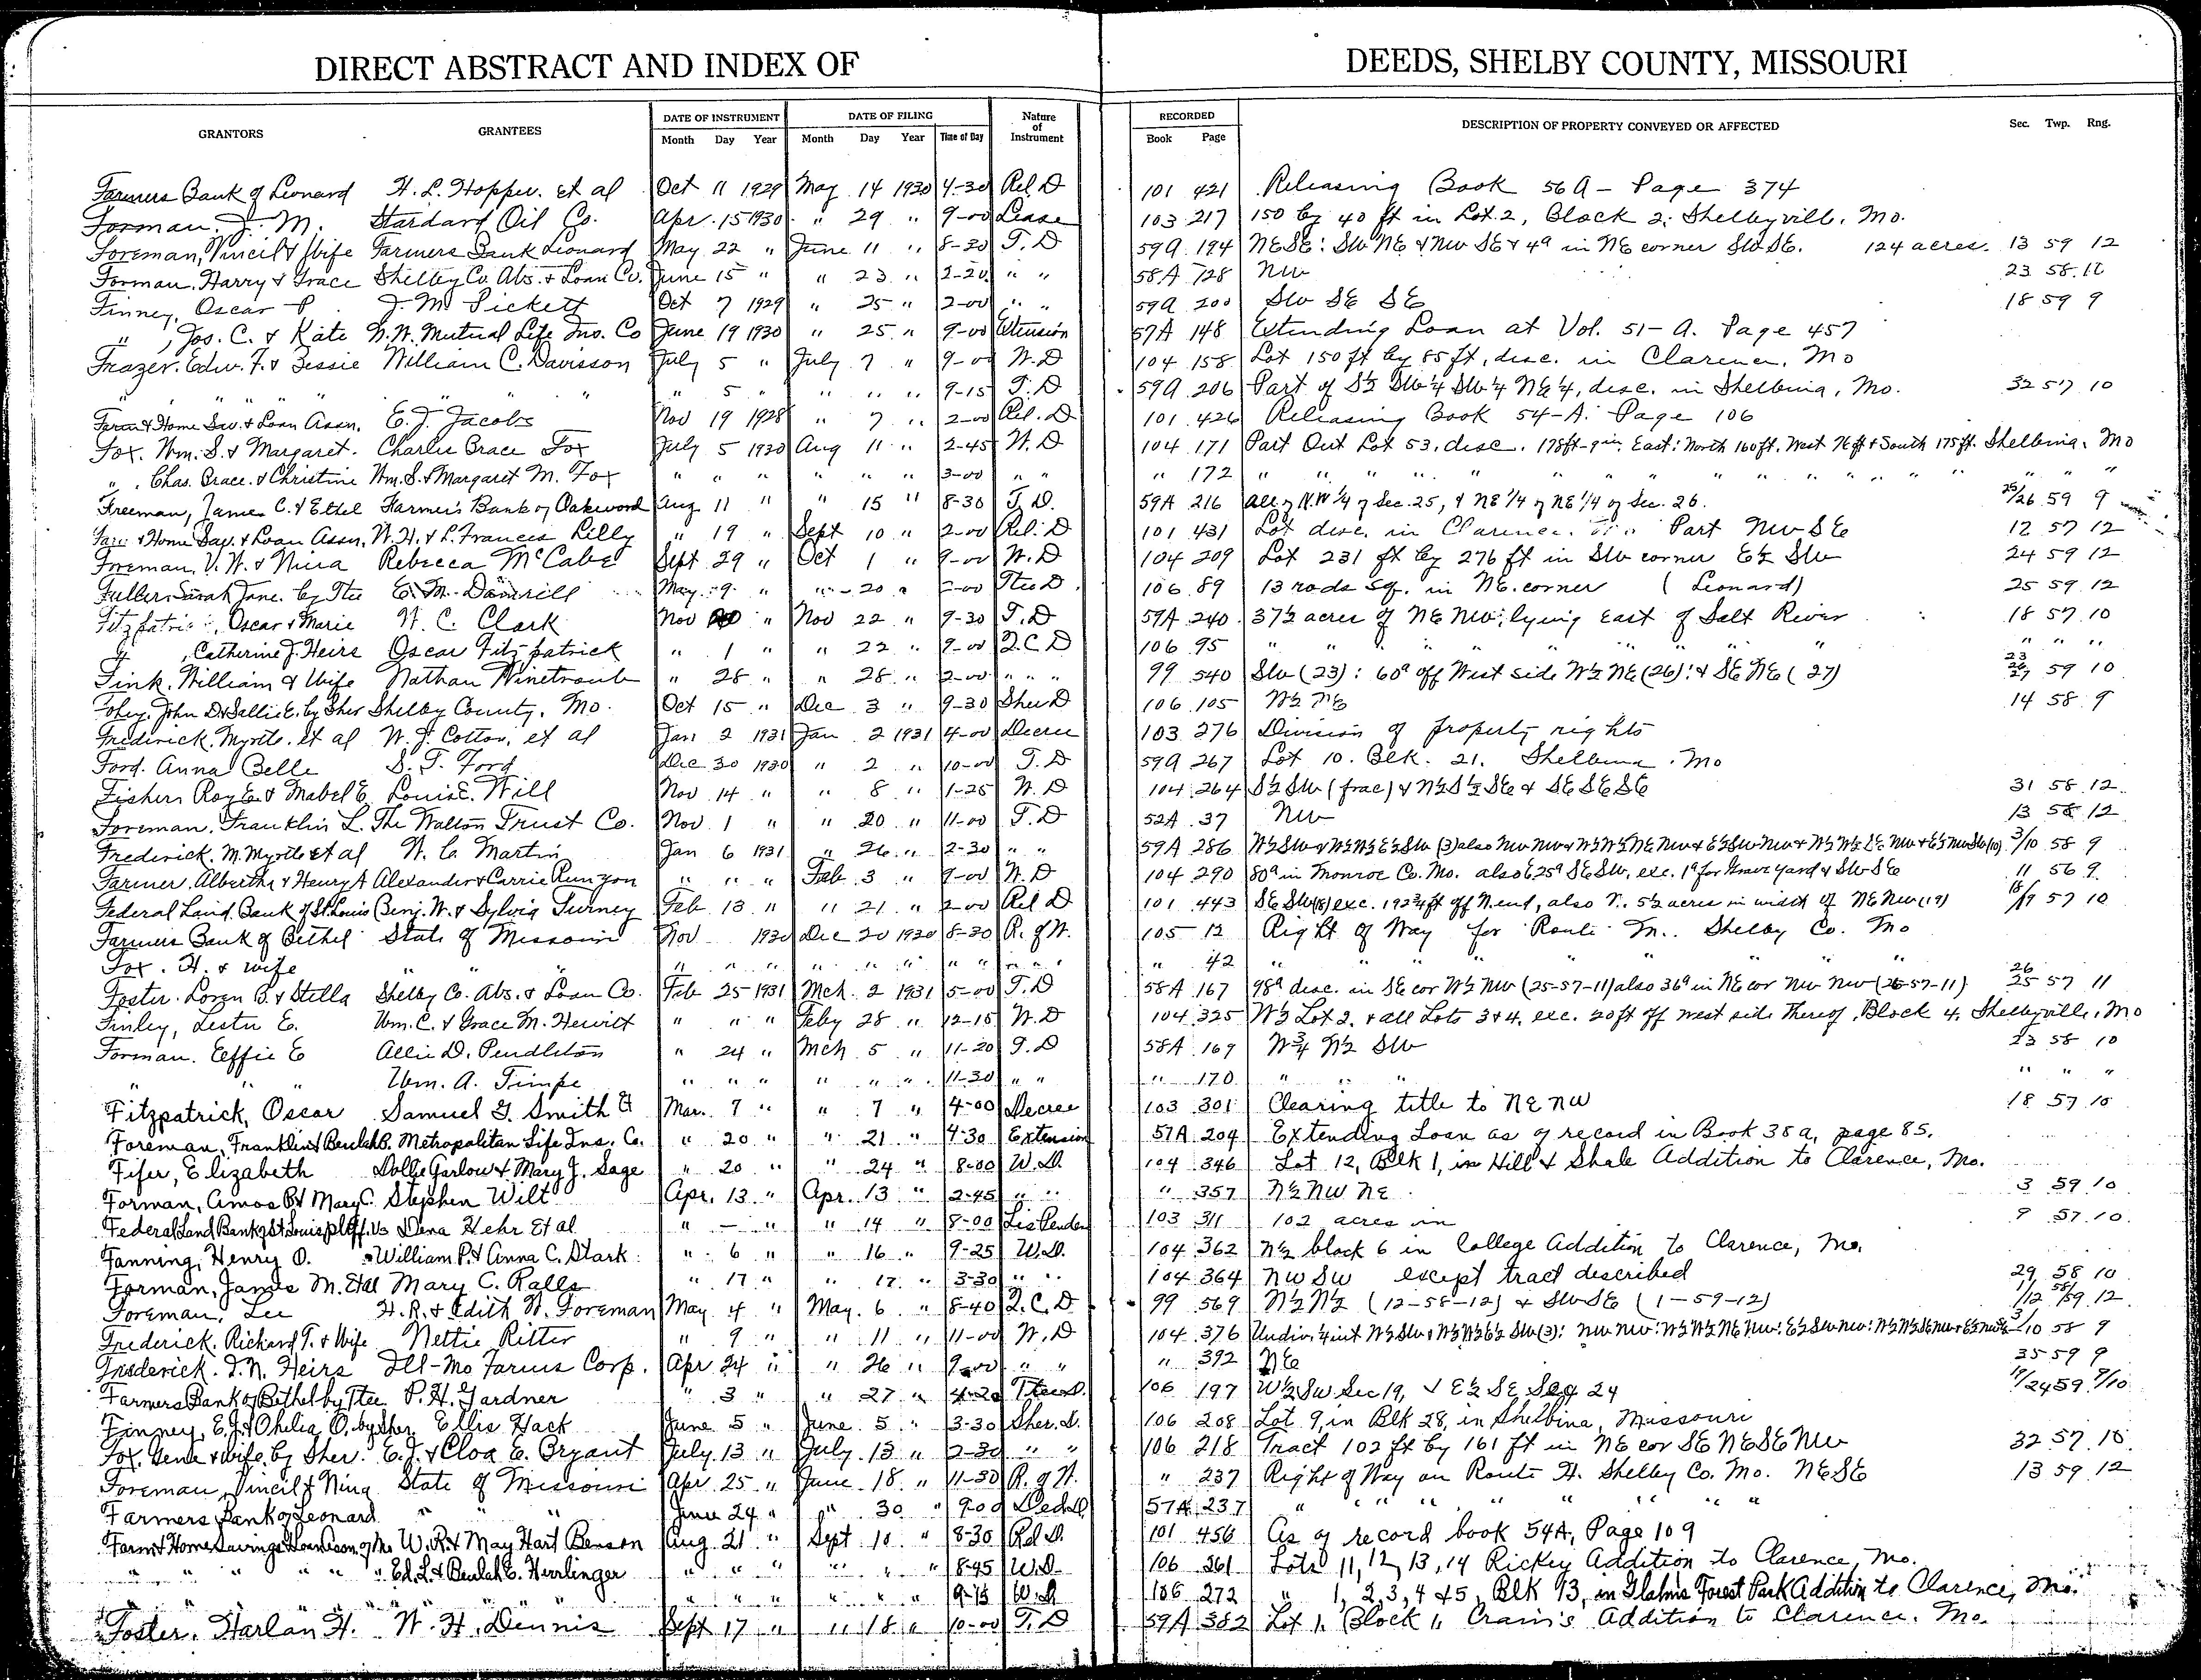 DIRECT ABSTRACT AND INDEX OF DEEDS, SHELBY COUNTY, MISSOURI
GRANTORS GRANTEES DATE OF INSTRUMENT DATE OF FILING Nature of Instrument RECORDED DESCRIPTION OF PROPERTY CONVEYED OR AFFECTED Sec. Twp. Rng.
Month Day Year Month Day Year Time of Day Book Page
Farmers Bank of Leonard H. L. Hopper. et al Oct 11 1929 May 14 1930 4-30 Rel D 101 421 Releasing Book 56A - Page 374
Forman. J. M. Standard Oil Co. Apr. 15 1930 " 29 " 9-00 Lease 103 217 150 by 40 ft in Lot 2, Block 2; Shelbyville, Mo.
Foreman, Vincil & Wife Farmers Bank Leonard May 22 " June 11 " 8-30 T. D 59A 194 NESE: SW NE & NW SE & 4a in NE corner SWSE. 124 acres. 13 59 12
Forman, Harry & Grace Shelby Co. Abs. & Loan Co. June 15 " " 23 " 2-20 " " 58A 128 NW 23 58
Finney, Oscar P. J. M. Pickett Oct 7 1929 " 25 " 2-00 " " 59A 200 SW SE SE 18 59 9
" , Jos. C. & Kate N.W. Mutual Life Ins. Co June 19 1930 " 25 " 9-00 Extension 57A 148 Extending Loan at Vol. 51-A. Page 457
Frazer. Edw. F. & Bessie William C. Davisson July 5 " July 7 " 9-00 W. D 104 158 Lot 150 ft by 85 ft, disc. in Clarence, Mo
" " " " " " " 5 " " " " 9-15 T. D 59A 206 Part of S½ SW¼ SW¼ NE¼, disc. in Shelbina, Mo. 32 57 10
Farm & Home Sav. & Loan Assn. E. J. Jacobs Nov 19 1928 " 7 " 2-00 Rel. D 101 426 Releasing Book 54-A. Page 106
Fox. Wm. S. & Margaret. Charlie Brace Fox July 5 1930 Aug 11 " 2-45 W. D 104 171 Part Out Lot 53, disc. 178ft-9in. East: North 160ft. West 76ft & South 175ft. Shelbina, Mo
" , Chas. Brace. & Christine Wm. S. & Margaret M. Fox " " " " " " 3-00 " " " 172 " " " " " " " " " " " " "
Freeman, James C. & Ethel Farmer's Bank of Oakwood Aug 11 " " 15 " 8-30 T. D. 59A 216 All of N.W ¼ of Sec. 25, & NE ¼ of NE ¼ of Sec. 26. 25/26 59 9
Farm & Home Sav. & Loan Assn, W. H. & L. Frances Lilly " 19 " Sept 10 " 2-00 Rel. D 101 431 Lot disc. in Clarence. Part NW SE 12 57 12
Foreman, V. W. & Nina Rebecca McCabe Sept 29 " Oct 1 " 9-00 W. D 104 209 Lot 231 ft by 276 ft in SW corner E½ SW 24 59 12
Fuller, Sarah Jane. by Tte E. M. Damrill May 9 " " 20 " 2-00 Ttes D. 106 89 13 rods sq. in NE. corner (Leonard) 25 59 12
Fitzpatrick, Oscar & Marie W. C. Clark Nov " Nov 22 " 9-30 T. D 59A 240 37½ acres of NE NW; lying East of Salt River 18 57 10
" , Catherine J. Heirs Oscar Fitzpatrick " 1 " " 22 " 9-00 Q. C. D 106 95 " " " " " " " " " "
Fink. William & Wife Nathan Winetroub " 28 " " 28 " 2-00 " " " 99 540 SW (23): 60a off West side W½ NE (26): & SE NE (27) 23 26/27 59 10
Fohey. John D & Sallie E. by Sher Shelby County, Mo. Oct 15 " Dec 3 " 9-30 Sher D 106 105 W½ NE 14 58 9
Frederick. Myrtle. et al W. J. Cotton, et al Jan 2 1931 Jan 2 1931 4-00 Decree 103 276 Division of property rights
Ford. Anna Belle S. T. Ford Dec 30 1930 " 2 " 10-00 T. D 59A 267 Lot 10. Blk. 21. Shelbina. Mo
Fisher, Roy E. & Mabel E. Louis E. Will Nov 14 " " 8 " 1-25 W. D 104 264 S½ SW (frac) & N½ S½ SE & SE SE SE 31 58 12
Foreman. Franklin L. The Walton Trust Co. Nov. 1 " " 20 " 11-00 T. D 52A 37 NW 13 58 12
Frederick. M. Myrtle et al W. C. Martin Jan 6 1931 " 26 " 2-30 " " 59A 286 W½SW & W½W½E½SW (3) also NW NW & W½W½NE NW & E½SW NW & W½W½SE NW & E½NWSW(10). 3/10 58 9
Farmer. Albertha & Henry A Alexander & Carrie Runyon " " " Feb 3 " 9-00 W. D 104 290 80a in Monroe Co. Mo. also 6.25a SESW, exc. 1a for Grave yard & SW SE 11 56 9
Federal Land Bank of St Louis Benj. W. & Sylvia Turney Feb 13 " " 21 " 2-00 Rel D 101 443 SE SW(18) exc. 192¾ft off N. end, also N. 5½ acres in width of NE NW (19) 18/19 57 10
Farmers Bank of Bethel State of Missouri Nov 1930 Dec 20 1930 8-30 R. of W. 105 12 Right of Way for Route M. Shelby Co. Mo
Fox. H. & wife " " " " " " " " " " " " " " " 42 " " " " " " "
Foster. Loren B. & Stella Shelby Co. Abs. & Loan Co. Feb 25 1931 Mch. 2 1931 5-00 T. D 58A 167 98a disc. in SE cor W½ NW (25-57-11) also 36a in NE cor NW NW (26-57-11) 26 25 57 11
Finley, Lester E. Wm. C. & Grace M. Hewitt " " " Feby 28 " 12-15 W. D 104 325 W½ Lot 2. & all Lots 3 & 4, exc. 20ft off west side Thereof, Block 4. Shelbyville, Mo
Forman. Effie E Allie D. Pendleton " 24 " Mch 5 " 11-20 T. D 58A 169 W¾ N½ SW 23 58 10
" " " Wm. A. Timpe " " " " " " 11-30 " " " 170 " " " " " "
Fitzpatrick, Oscar Samuel G. Smith Mar. 7 " " 7 " 4-00 Decree 103 301 Clearing title to NE NW 18 57 10
Foreman, Franklin & Beulah B. Metropolitan Life Ins. Co. " 20 " " 21 " 4-30 Extension 57A 204 Extending Loan as of record in Book 38a, page 85.
Fifer, Elizabeth Dollie Garlow & Mary J. Sage " 20 " " 24 " 8-00 W. D. 104 346 Lot 12, Blk 1, in Hill & Shale Addition to Clarence, Mo.
Forman, Amos B & Mary C. Stephen Wilt Apr. 13 " Apr. 13 " 2-45 " " " 357 N½ NW NE 3 59 10
Federal Land Bank of St Louis Plff. Vs Dena Hehr Et al " — " " 14 " 8-00 Lis Penden 103 311 102 acres in 9 57 10
Fanning, Henry O. William P. & Anna C. Stark " 6 " " 16 " 9-25 W. D. 104 362 N½ block 6 in College Addition to Clarence, Mo.
Forman, James M. Et al Mary C. Ralls " 17 " " 17 " 3-30 " " 104 364 NW SW except tract described 29 58 10
Foreman, Lee H. R. & Edith W. Foreman May 4 " May 6 " 8-40 Q. C. D 99 569 N½ N½ (12-58-12) & SW SE (1-59-12) 1/12 58/59 12
Frederick. Richard T. & Wife Nettie Ritter " 9 " " 11 " 11-00 W. D 104 376 Undiv. ¼ int W½ SW & W½W½E½ SW(3): NW NW: W½W½NE NW: E½SW NW: W½W½SE NW & 3/10 58 9
Frederick. I. N. Heirs Ill-Mo Farms Corp. Apr 24 " " 26 " 9-00 " " " 392 NE 35 59 9
Farmers Bank of Bethel by Ttee P. H. Gardner " 3 " " 27 " 4-20 Ttees D. 106 197 W½ SW Sec 19, & E½ SE Sec 24 19/24 59 9/10
Finney, E.J. & Ohelia O. by Sher Ellis Hack June 5 " June 5 " 3-30 Sher. D. 106 208 Lot 9, in Blk 28, in Shelbina, Missouri
Fox, Gene & wife by Sher. E. J. & Cloa E. Bryant July 13 " July 13 " 2-30 " " 106 218 Tract 102 ft by 161 ft in NE cor SE NE SE NW 32 57 10
Foreman, Vincil & Nina State of Missouri Apr 25 " June 18 " 11-30 R. of W. " 237 Right of Way on Route H. Shelby Co. Mo. NESE 13 59 12
Farmers Bank of Leonard " " " June 24 " " 30 " 9-00 Ded. D 57A 237 " " " " " " " "
Farm & Home Savings & Loan Assn. of Mo W. R. & May Hart Benson Aug 21 " Sept 10 " 8-30 Rel D. 101 456 As of record book 54A, Page 109
" " " " " " Ed. L. & Beulah E. Herrlinger " " " " " " 8-45 W. D. 106 261 Lots 11, 12, 13, 14 Rickey Addition to Clarence, Mo.
" " " " " " " " " " " " " 9-15 W. D 106 272 " 1, 2, 3, 4 & 5, Blk 13, in Forest Park Addition to Clarence, Mo.
Foster. Harlan H. W. H. Dennis Sept 17 " " 18 " 10-00 T. D 59A 382 Lot 1. Block 1, Crain's Addition to Clarence. Mo.